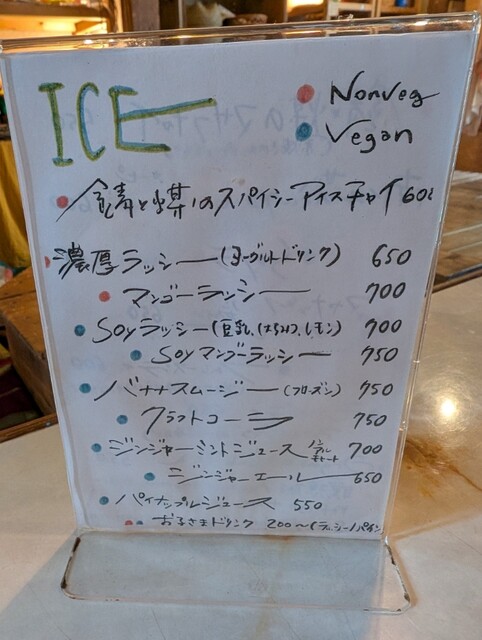 ICE
Nonveg
Vegan
のスパイシーアイスチャイ
濃厚ラッシー(ヨーグルトドリンク) 650
マンゴーラッシー 700
Soyラッシー(豆乳,はちみつ,レモン) 700
Soyマンゴーラッシー 750
バナナスムージー(フローズン) 750
クラフトコーラ 750
ジンジャーミントジュース ノンアルモヒート 700
ジンジャーエール 650
パイナップルジュース 550
お子さまドリンク 200〜(ラッシー/パイン